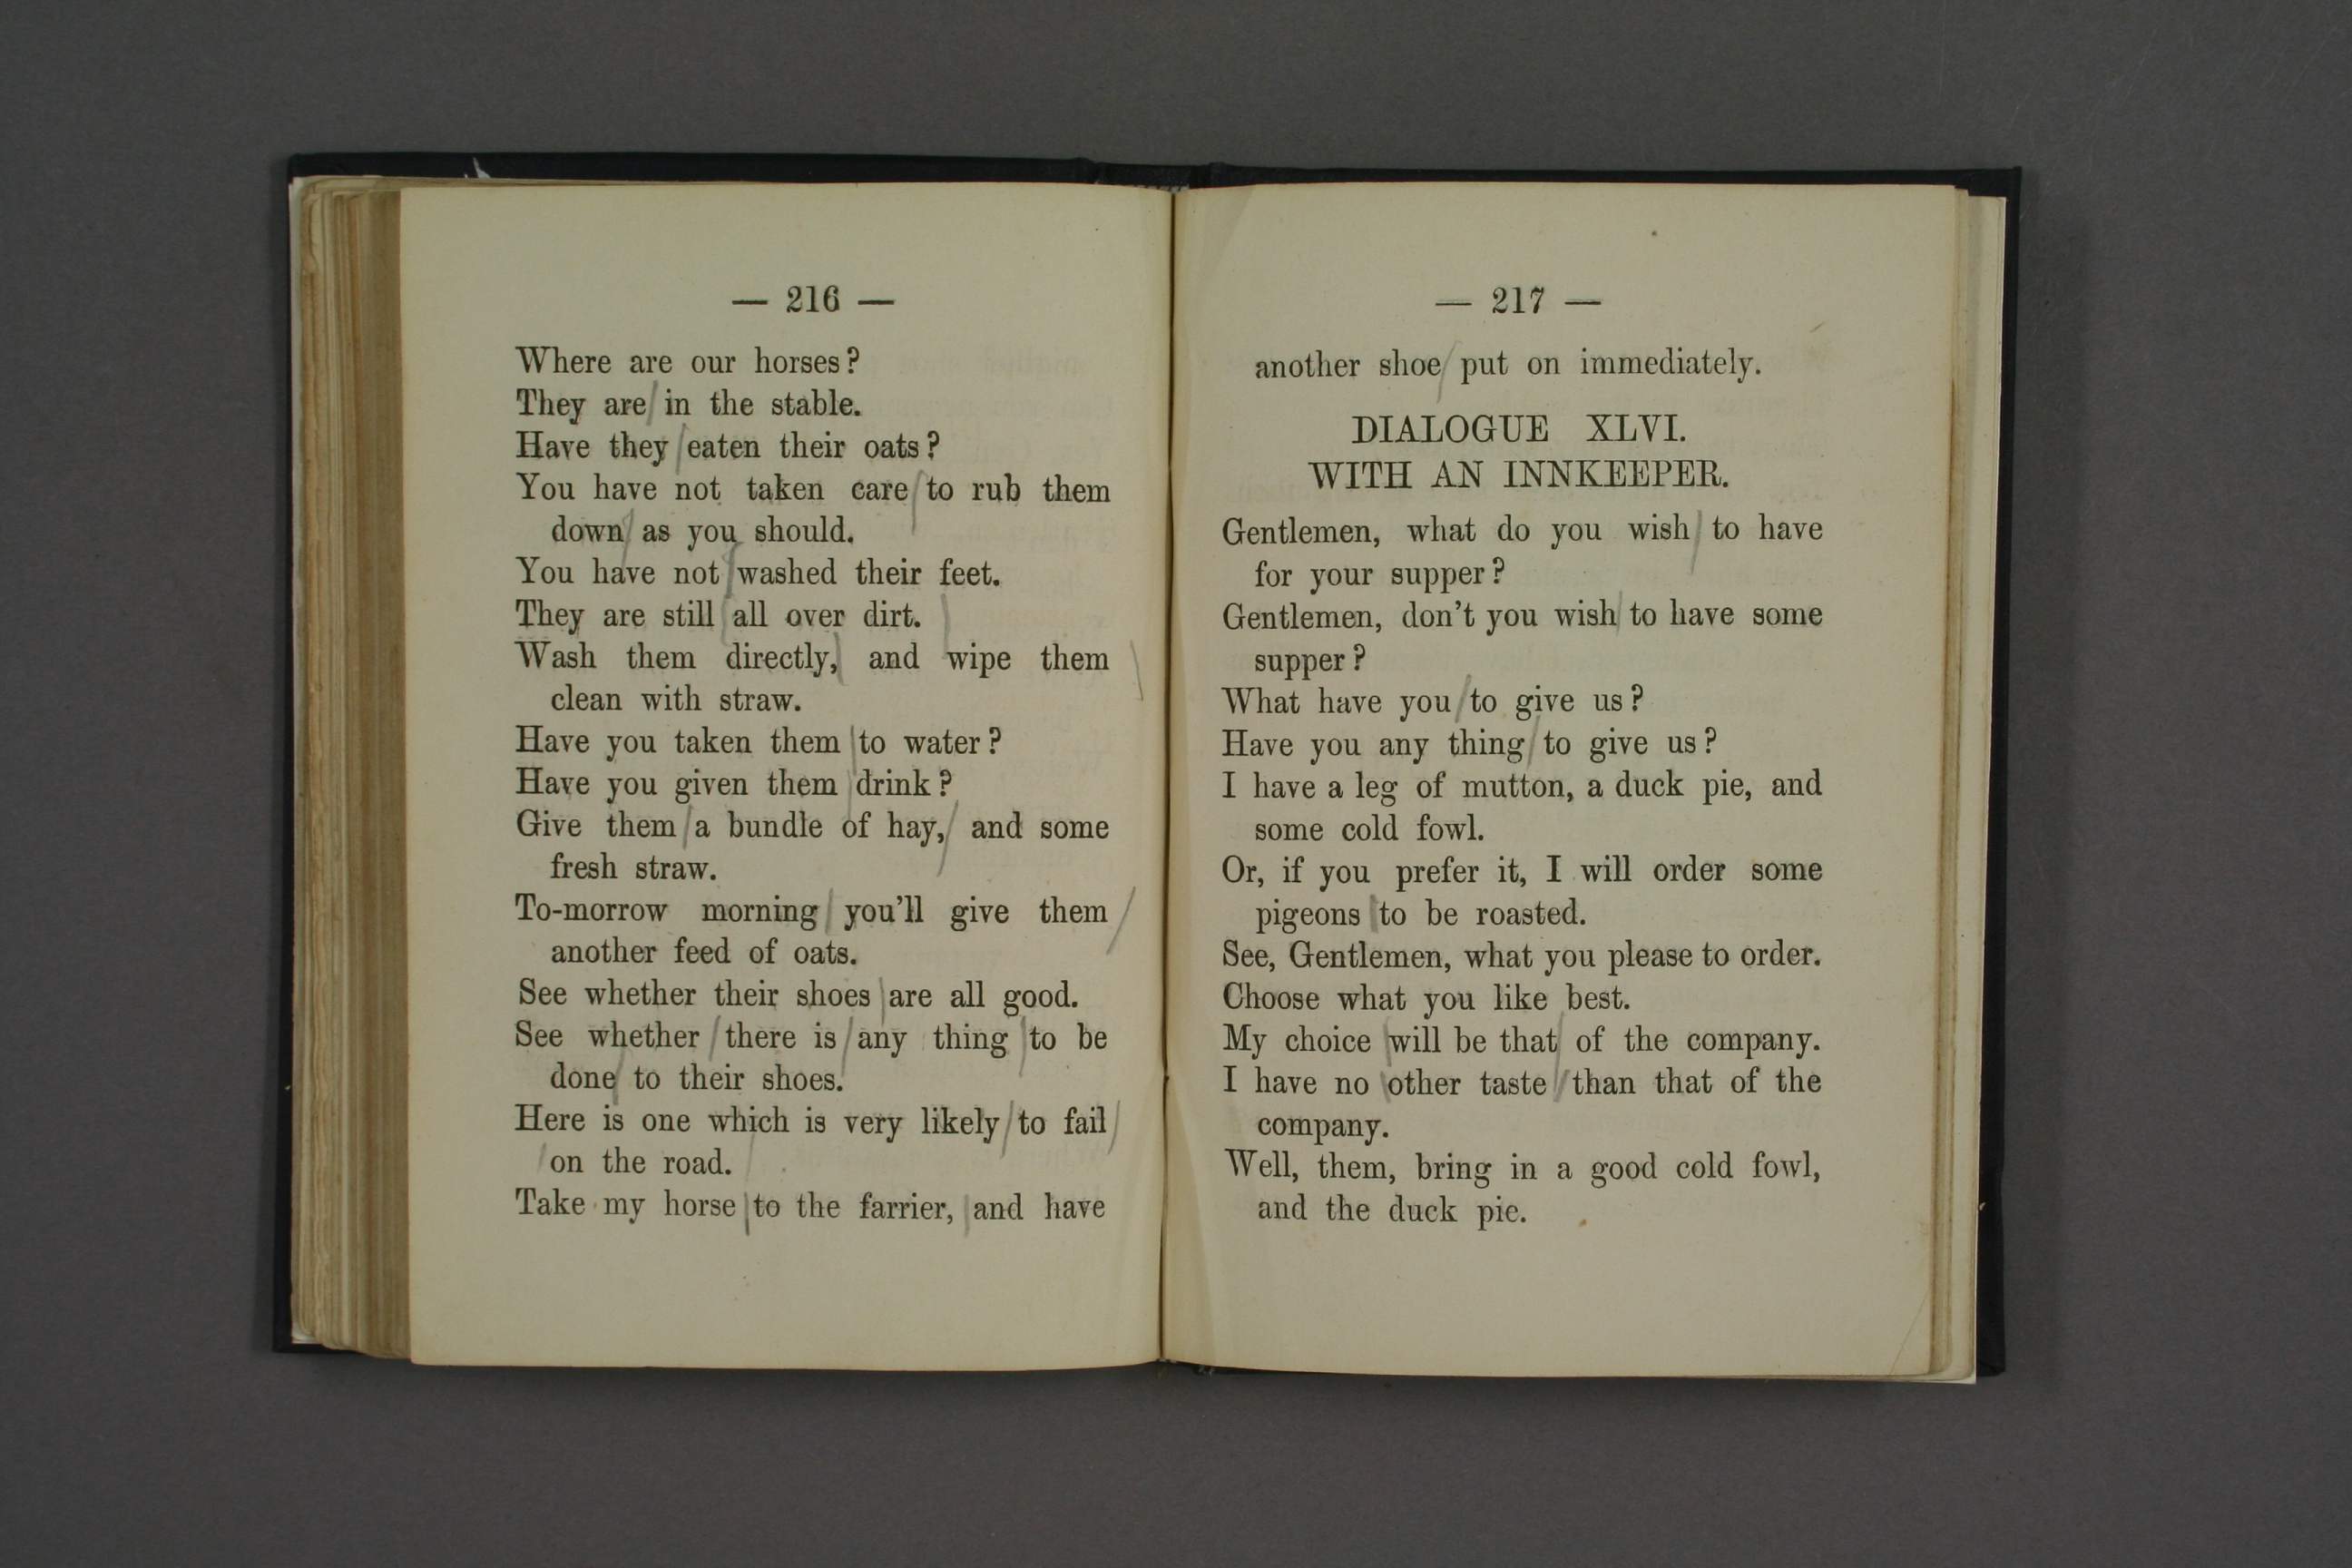 — 216 —
Where are our horses?
They are in the stable.
Have they eaten their oats?
You have not taken care to rub them
down as you should.
You have not washed their feet.
They are still all over dirt.
Wash them directly, and wipe them
clean with straw.
Have you taken them to water?
Have you given them drink?
Give them a bundle of hay, and some
fresh straw.
To-morrow morning you'll give them
another feed of oats.
See whether their shoes are all good.
See whether there is any thing to be
done to their shoes.
Here is one which is very likely to fail
on the road.
Take my horse to the farrier, and have
— 217 —
another shoe put on immediately.
DIALOGUE XLVI.
WITH AN INNKEEPER.
Gentlemen, what do you wish to have
for your supper?
Gentlemen, don't you wish to have some
supper?
What have you to give us?
Have you any thing to give us?
I have a leg of mutton, a duck pie, and
some cold fowl.
Or, if you prefer it, I will order some
pigeons to be roasted.
See, Gentlemen, what you please to order.
Choose what you like best.
My choice will be that of the company.
I have no other taste than that of the
company.
Well, them, bring in a good cold fowl,
and the duck pie.